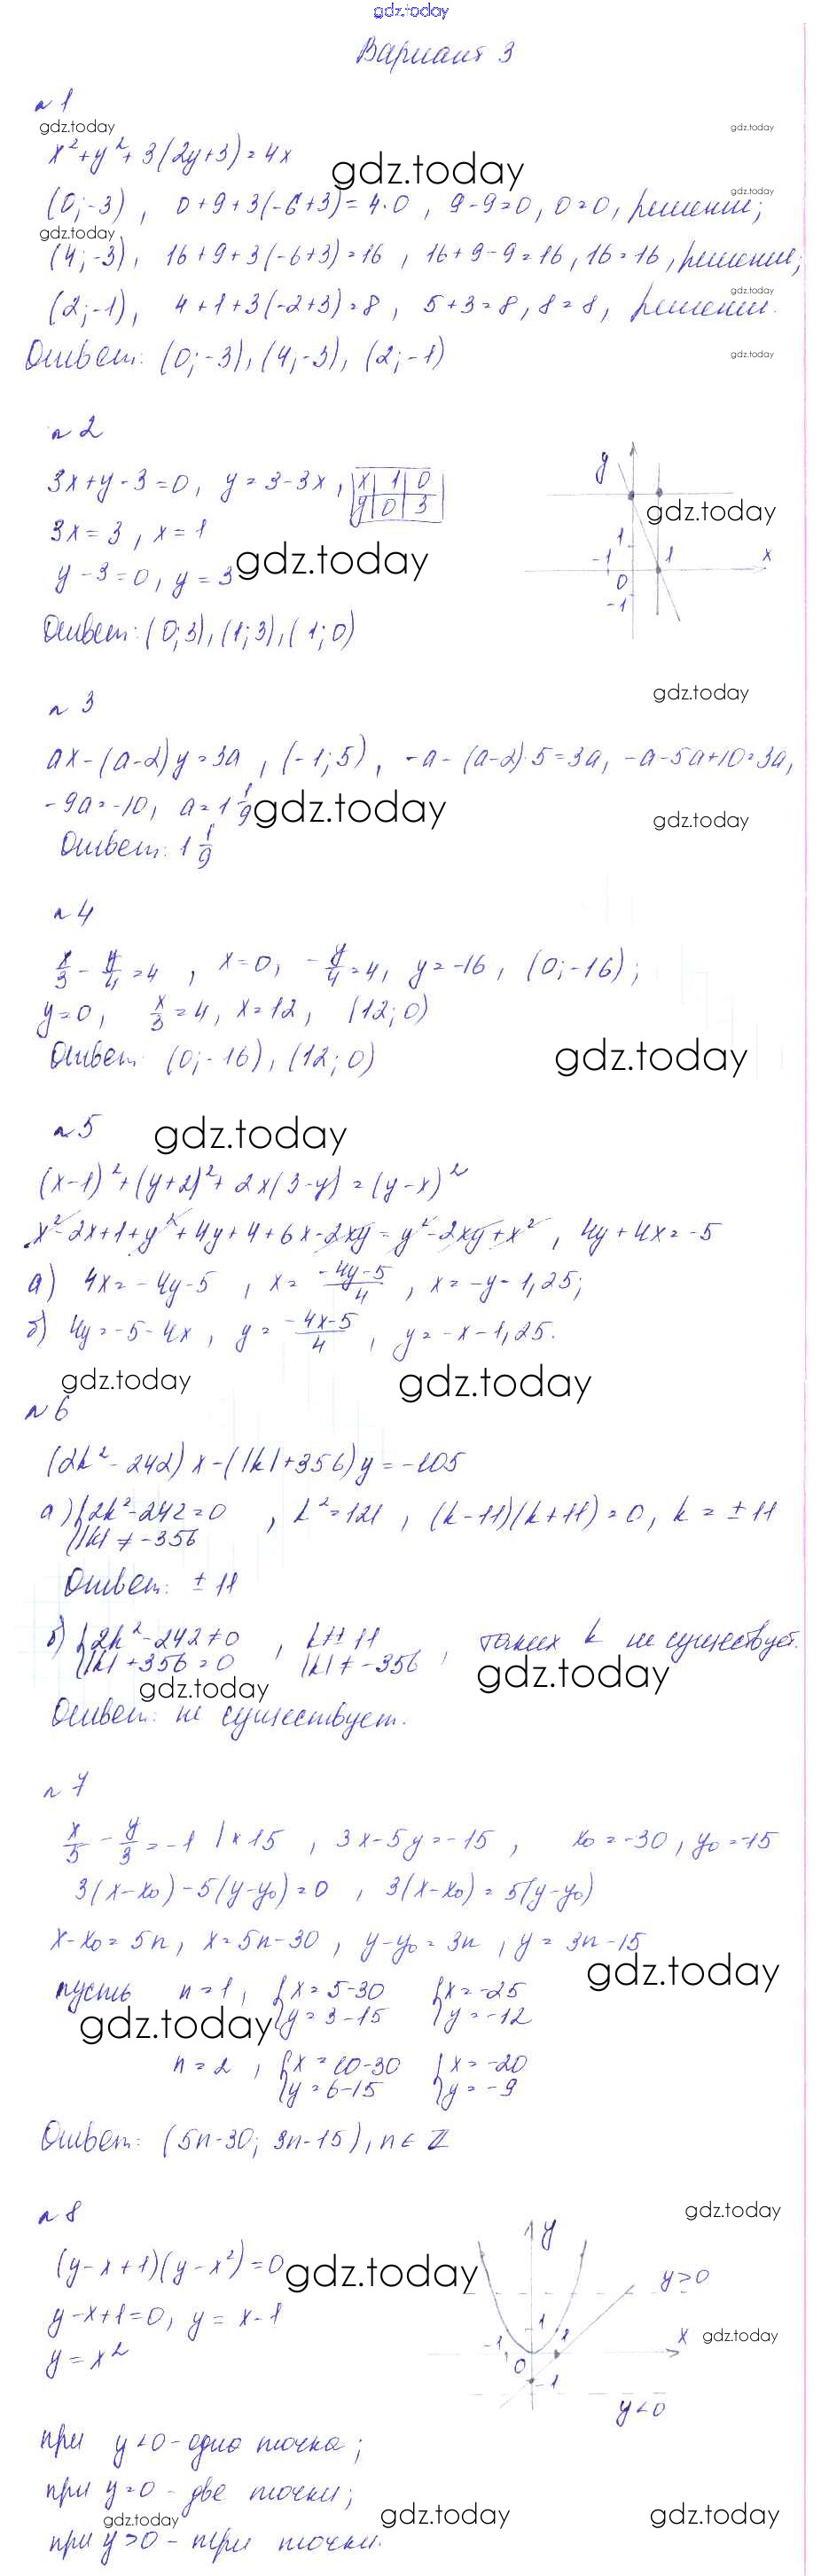 gdz.today
Вариант 3
№ 1
gdz.today
gdz.today
x² + y² + 3(2y+3) = 4x
gdz.today
gdz.today
(0; -3), 0+9+3(-6+3) = 4·0, 9-9=0, 0=0, решение;
gdz.today
(4; -3), 16+9+3(-6+3)=16, 16+9-9=16, 16=16, решение;
gdz.today
(2; -1), 4+1+3(-2+3)=8, 5+3=8, 8=8, решение.
Ответ: (0; -3), (4; -3), (2; -1)
gdz.today
№ 2
3x+y-3=0, y = 3-3x, x 1 0
y 0 3
3x = 3, x = 1
y-3=0, y = 3
gdz.today
Ответ: (0;3), (1;3), (1;0)
y
gdz.today
1
-1 1 x
0
-1
gdz.today
№ 3
ax-(a-2)y=3a, (-1;5), -a-(a-2)·5=3a, -a-5a+10=3a,
-9a=-10, a=1 1/9
gdz.today
gdz.today
Ответ: 1 1/9
№ 4
x/3 - y/4 = 4, x=0, -y/4=4, y=-16, (0;-16);
y=0, x/3=4, x=12, (12;0)
Ответ: (0;-16), (12;0)
gdz.today
№ 5
gdz.today
(x-1)²+(y+2)²+2x(3-y)=(y-x)²
x²-2x+1+y²+4y+4+6x-2xy=y²-2xy+x², 4y+4x=-5
а) 4x=-4y-5, x= (-4y-5)/4, x=-y-1,25;
б) 4y=-5-4x, y= (-4x-5)/4, y=-x-1,25.
gdz.today
gdz.today
№ 6
(2k²-242)x-(|k|+356)y=-105
а) {2k²-242=0, k²=121, (k-11)(k+11)=0, k=±11
|k|≠-356
Ответ: ±11
б) {2k²-242≠0, k≠±11, таких k не существует.
|k|+356=0 |k|≠-356
gdz.today
gdz.today
Ответ: не существует.
№ 7
x/5 - y/3 = -1 |×15, 3x-5y=-15, x₀=-30, y₀=-15
3(x-x₀)-5(y-y₀)=0, 3(x-x₀)=5(y-y₀)
x-x₀=5n, x=5n-30, y-y₀=3n, y=3n-15
gdz.today
пусть n=1, {x=5-30 {x=-25
y=3-15 y=-12
gdz.today
n=2, {x=10-30 {x=-20
y=6-15 y=-9
Ответ: (5n-30; 3n-15), n∈Z
№ 8
gdz.today
(y-x+1)(y-x²)=0
gdz.today
y-x+1=0, y=x-1
y=x²
y
y>0
1
-1 1 x
gdz.today
0
-1
y<0
при y<0 - одна точка;
при y=0 - две точки;
gdz.today
gdz.today
gdz.today
при y>0 - три точки.